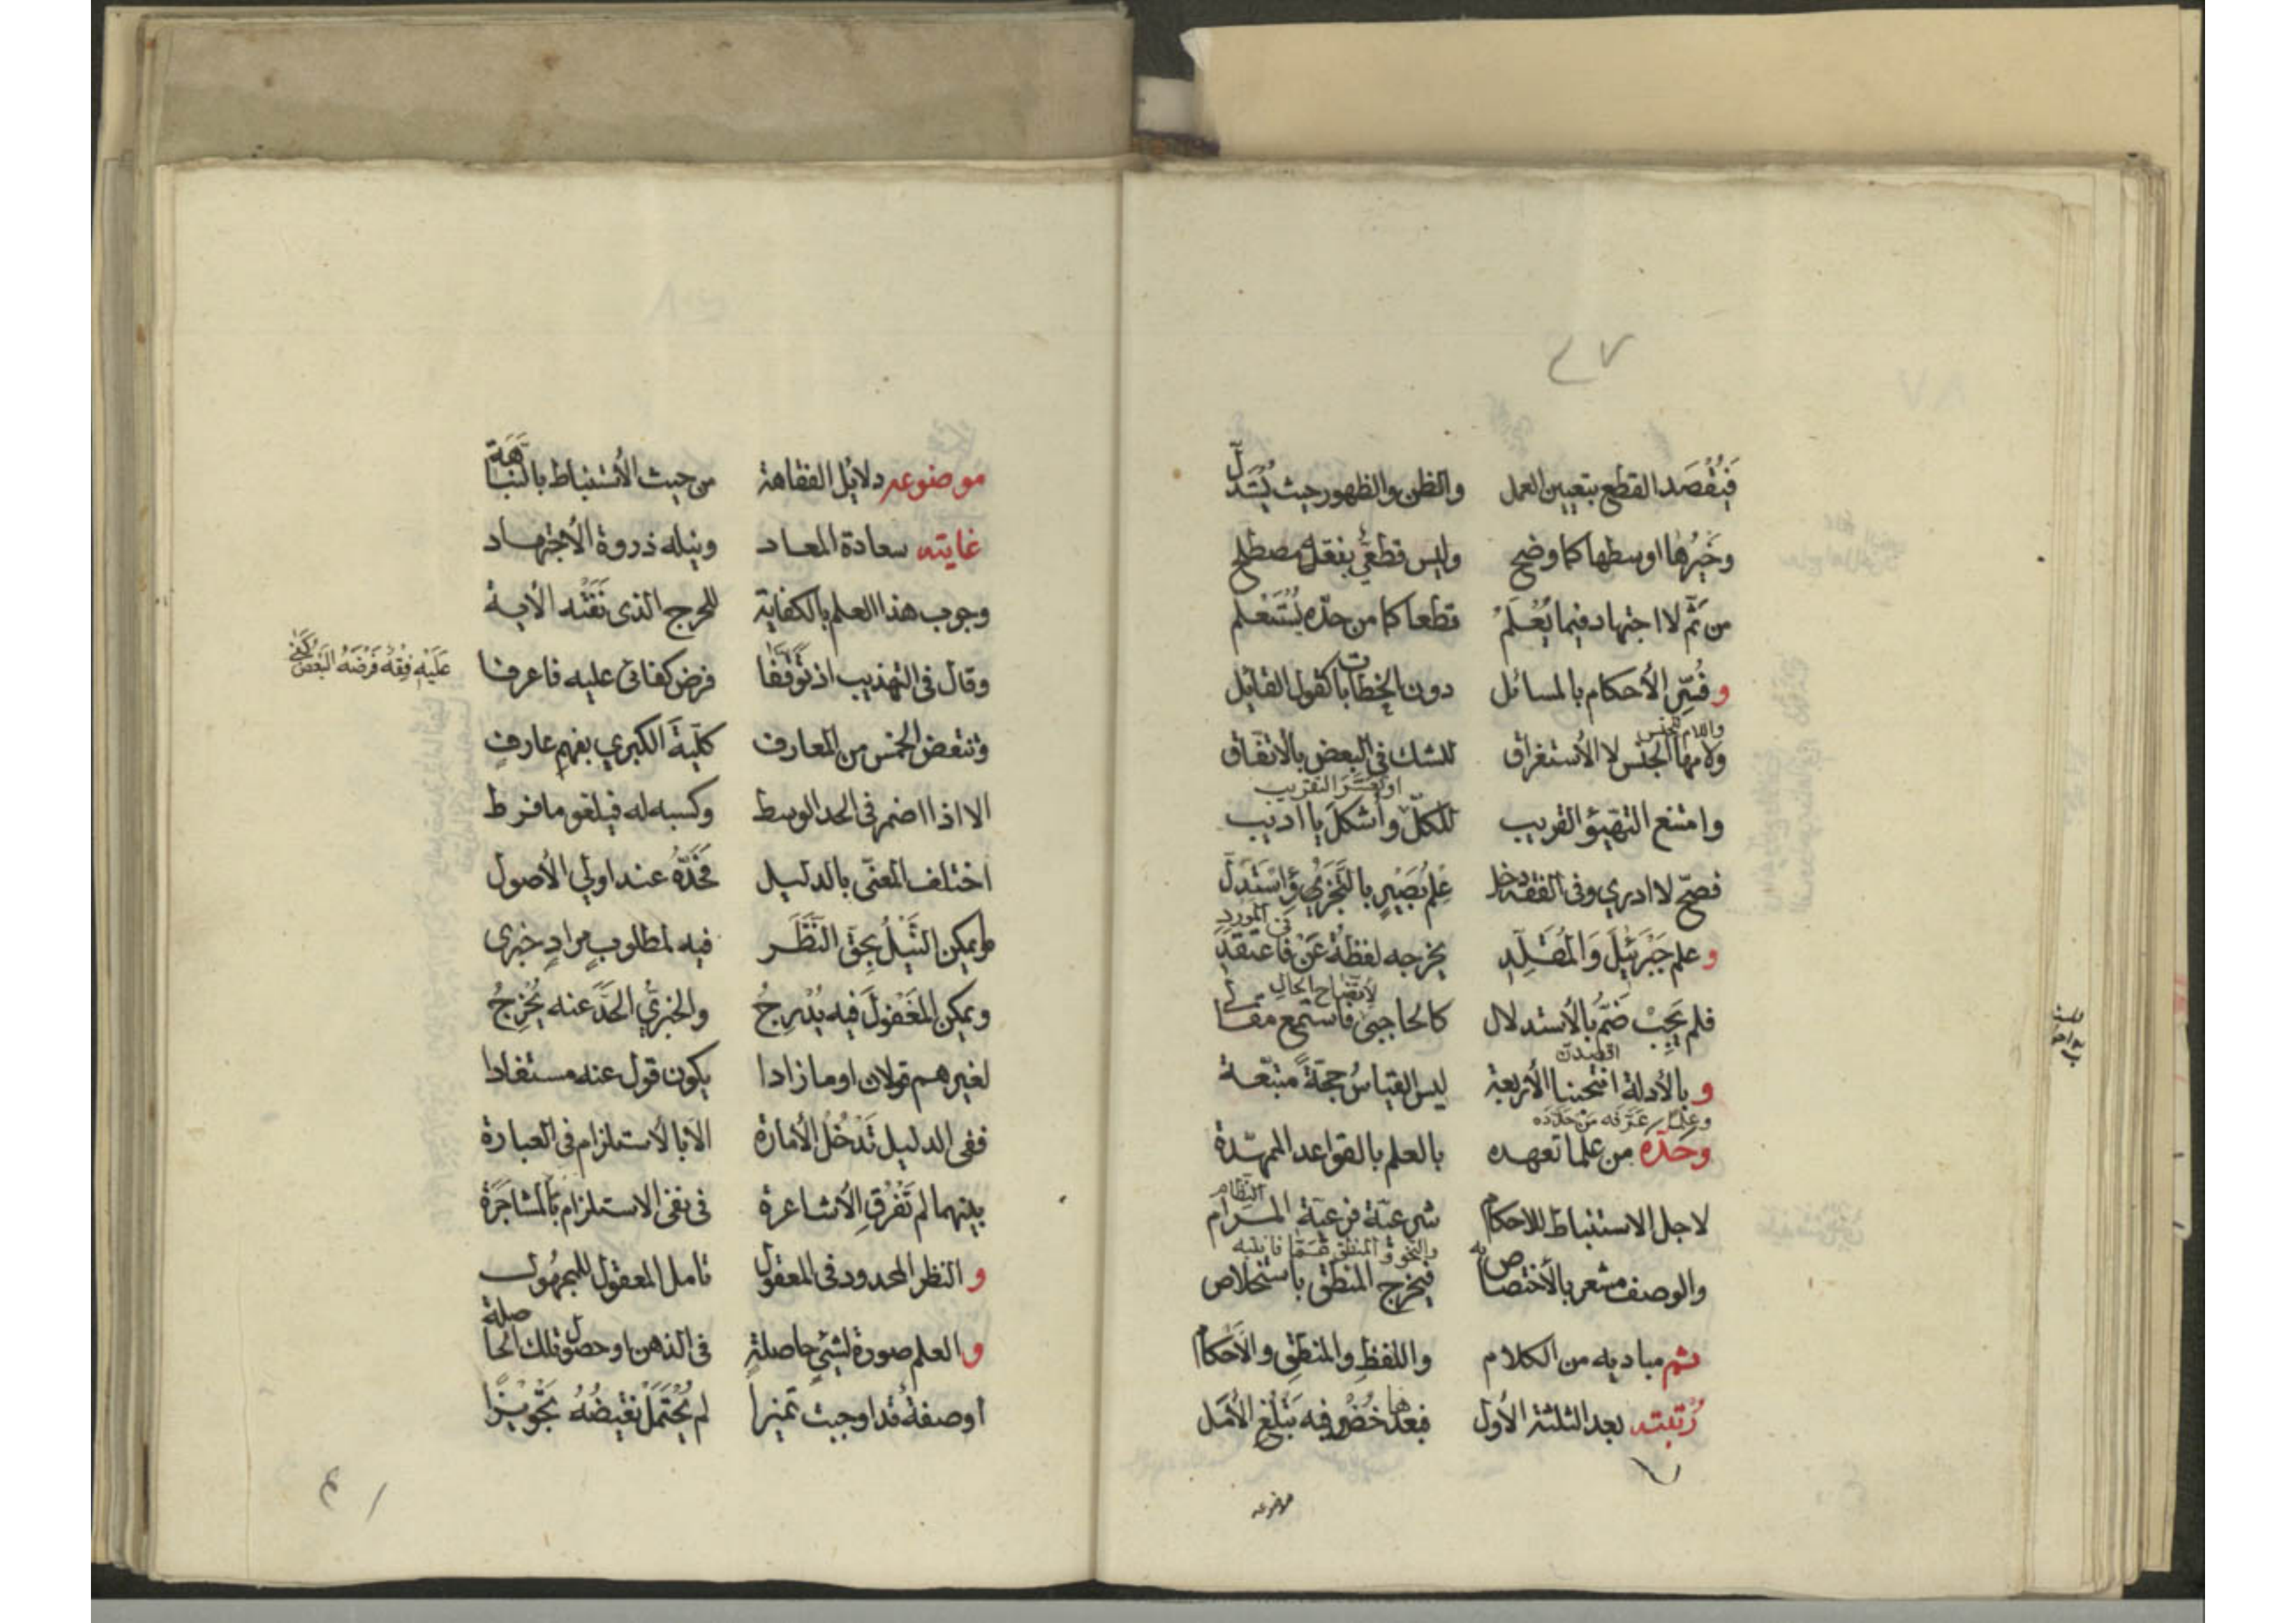 ٤٧
فيُقصَد القطع بتعيين العمل والظن والظهور حيث يُستدلّ
وخيرُها اوسطها كما وضح وليس قطعيٌّ بفقه مصطلح
من ثَمّ لا اجتهاد فيما يُعْلَمْ قطعا كما من حدّه يُستعلم
و فُسِّر الأحكام بالمسائل دون الخطابات كقول القائل
واللام للجنس
ولامها الجنس لا الأستغراق للشك في البعض بالاتفاق
او تعسّر التقريب
وامتنع التهيؤ القريب للكلّ وأشكل يا اديب
فصحّ لا ادري وفي الفقه دخل عِلمُ بَصيرٍ بالتجزي واستدلّ
في المورد
و علم جَبرَئيلَ وَالمُقَلِّدِ يخرجه لفظةُ عَنْ فاعتقد
لاتّضاح الحال
فلم يَجِبْ ضَمٌّ بالأستدلال كالحاجبى فاستمع مقالي
و بالأدلة الأربعة ليس القياسُ حجةً متبّعة
وعلمًا عَرَّفه مَن حدّده
وحدّه من علما تعهده بالعلم بالقواعد الممهّدة
النظام
لاجل الاستنباط للاحكام شرعيّة فرعيّة المرام
والوصف مشعر بالأختصاص به فيخرج المنطق باستخلاص
ثم مباديه من الكلام واللفظِ والمنطقِ والأحكام
رُتبته بعد الثلثة الأول فبعدها خُضْ فيه تبلُغ الأمل
موضوعه
موضوعه دلائل الفقاهة من حيث الأستنباط بالنباهة
غايته سعادة المعاد ونيله ذروة الأجتهاد
وجوب هذا العلم بالكفاية للحرج الذى نَفَتْه الأية
وقال في التهذيب اذ توقفا فرض كفائى عليه فاعرفا
عَلَيهِ فِقهٌ فَرضُهُ البعضُ كَفى
وتنقض الخمس من المعارف كلّيةَ الكبري بفهمِ عارفٍ
الا اذا اضمر فى الحد الوسط وكسبه له فيلغو ما فرط
اختلف المَعنى بالدليل فَحَدُّهُ عند اولي الأصول
ما يمكن النَّيلُ بِحَقّ النَّظَر فيه لمطلوبٍ مرادٍ خبرى
ويمكن المَغفولَ فيه يُدْرِجُ والخبرىُّ الحَدَّ عنه يُخرِجُ
لغيرهم قولان او ما زادا يكون قول عنه مستفادا
ففى الدليل تَدخُلُ الأمارة الا بالأستلزام فى العبارة
بينهما لم تَفْرُقِ الأشاعرة فى نفى الاستلزام بالمشاجَرَة
و النظر المحدود فى المعقول تامل المعقول للمجهول
و العلم صورة لشئٍ حاصلةٍ فى الذهن او حصول تلك الحاصلة
أو صفةٌ قد اوجبت تميزاً لم يُحتمَل نقيضُهُ تجويزاً